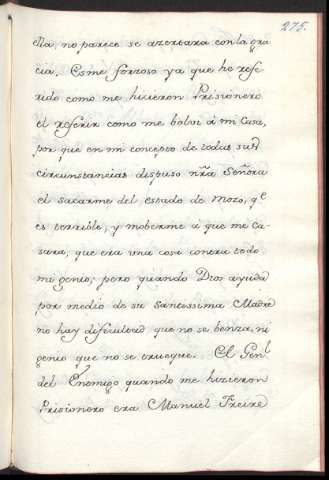 275.
Ma, no parece se azertara con la gra
cia. Es me forzoso ya que he refe
rido como me hizieron Prisionero
el referir como me bolvi á mi Casa,
por que en mi concepto de todas sus
circunstancias dispuso nr̃a Señora
el sacarme del estado de mozo, qe
es terrible, y moberme á que me Ca-
sara, que era una cosa contra todo
mi genio; pero quando Dios ayuda
por medio de su Santessima Madre
no hay dificultad que no se benza, ni
genio que no se trueque. El Genl
del Enemigo quando me hizieron
Prisionero era Manuel Freire